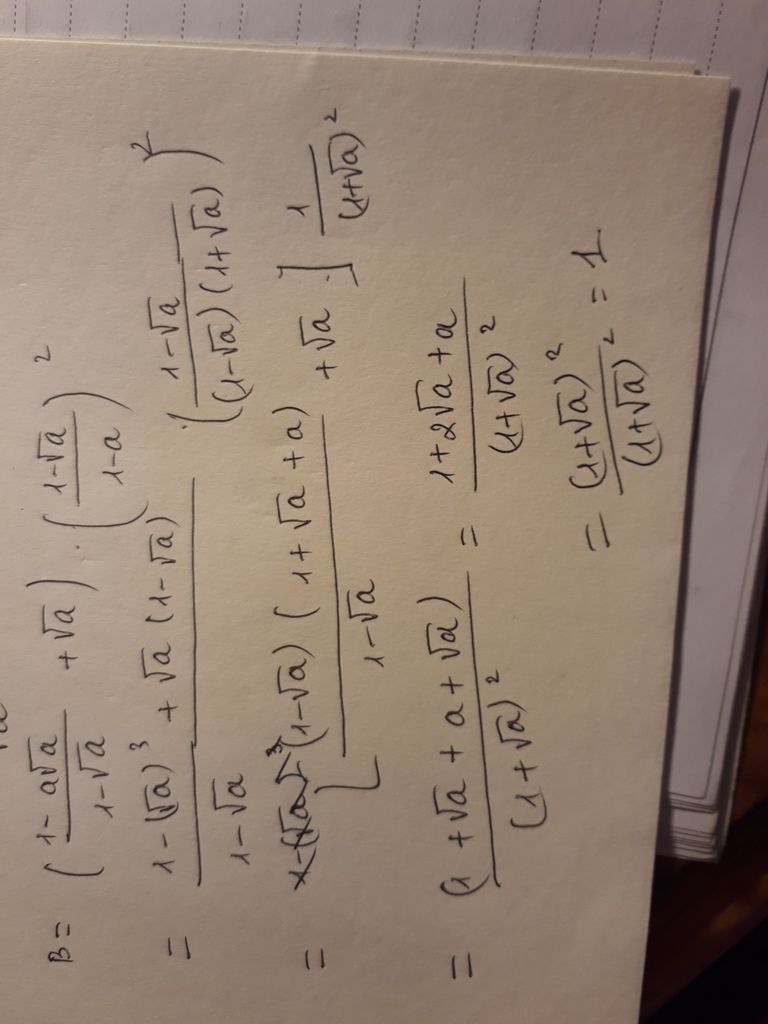 B = ( (1-a√a)/(1-√a) + √a ) · ( (1-√a)/(1-a) )²
= (1-(√a)³ + √a (1-√a))/(1-√a) · ( (1-√a)/((1-√a)(1+√a)) )²
= [ ((1-√a)(1+√a+a))/(1-√a) + √a ] · 1/(1+√a)²
= (1+√a+a+√a)/(1+√a)² = (1+2√a+a)/(1+√a)²
= (1+√a)²/(1+√a)² = 1